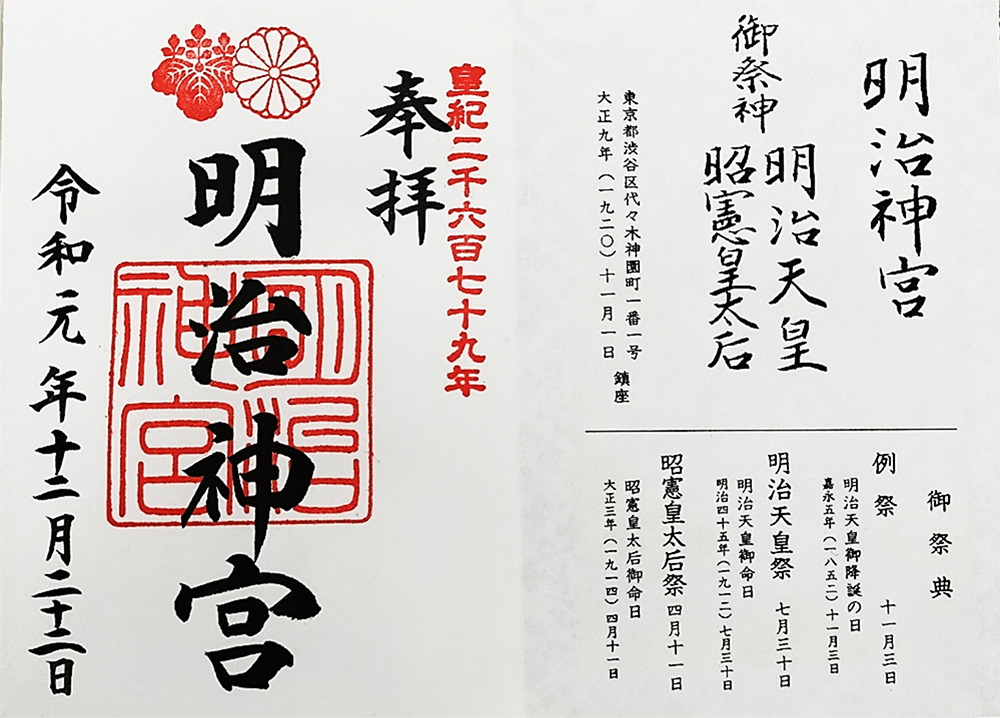 明治神宮
御祭神
明治天皇
昭憲皇太后
東京都渋谷区代々木神園町一番一号
大正九年（一九二〇）十一月一日　鎮座
御祭典
例祭　十一月三日
明治天皇御降誕の日
嘉永五年（一八五二）十一月三日
明治天皇祭　七月三十日
明治天皇御命日
明治四十五年（一九一二）七月三十日
昭憲皇太后祭　四月十一日
昭憲皇太后御命日
大正三年（一九一四）四月十一日
皇紀二千六百七十九年
奉拝
明治神宮
明治
神宮
令和元年十二月二十二日